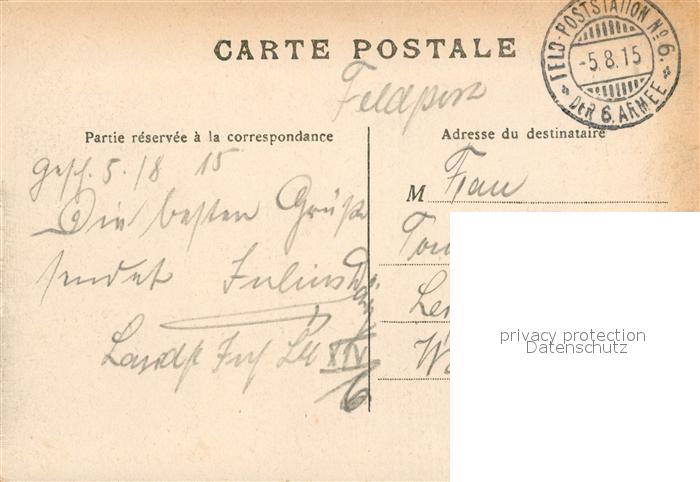 CARTE POSTALE
FELD-POSTSTATION No 6.
-5.8.15
* DER 6. ARMEE *
Feldpost
Partie réservée à la correspondance
Gesch. 5./8 15
Die besten Grüße
sendet Julius
Landst Inf
XIV
6
Adresse du destinataire
M Frau
privacy protection
Datenschutz